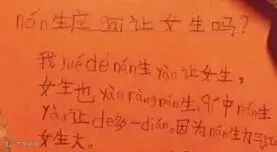 nán生应gāi让女生吗？
我jué dé nán生yào让女生，
女生也yào ràng nán生，个中nán生
yào让de多一diǎn，因为nán生力
女生大。